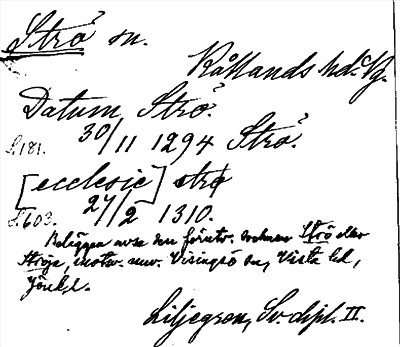 Strö sn.
Kållands hd. Vg.
Datum Strö.
S. 181. 30/11 1294 Strö.
[ecclesie] strø
S. 603. 27/2 1310.
Beläggen avse den förutv. socknen Strö eller
Ströja, motsv. nuv. Visingsö sn, Vista hd,
Jönk.l.
Liljegren, Sv. dipl. II.